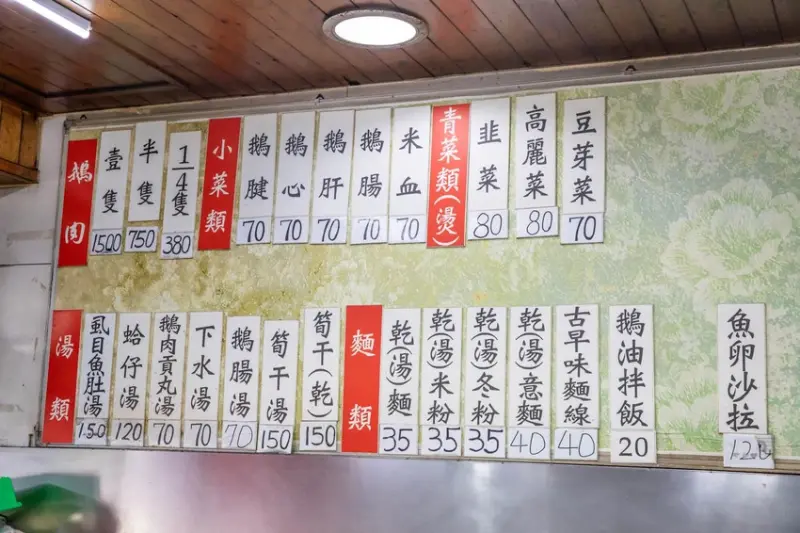 鵝肉
壹隻 1500
半隻 750
1/4隻 380
小菜類
鵝腱 70
鵝心 70
鵝肝 70
鵝腸 70
米血 70
青菜類(燙)
韭菜 80
高麗菜 80
豆芽菜 70
湯類
虱目魚肚湯 150
蛤仔湯 120
鵝肉貢丸湯 70
下水湯 70
鵝腸湯 70
筍干湯 150
筍干(乾) 150
麵類
乾(湯)麵 35
乾(湯)米粉 35
乾(湯)冬粉 35
乾(湯)意麵 40
古早味麵線 40
鵝油拌飯 20
魚卵沙拉 120